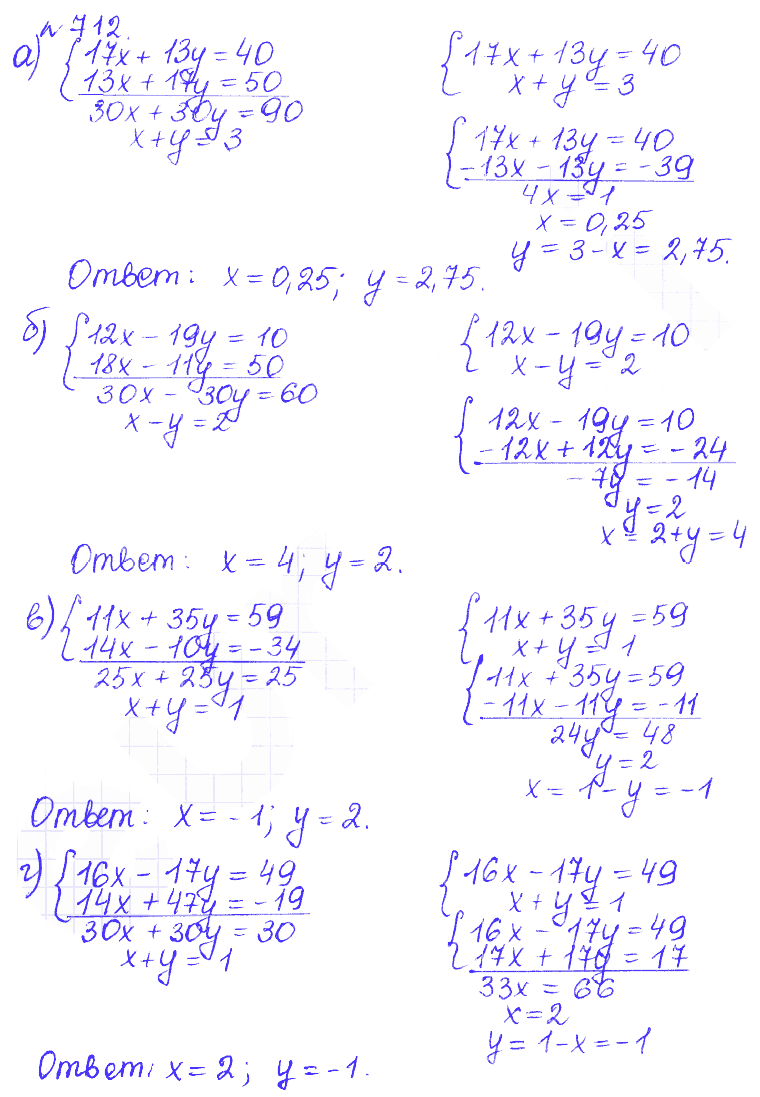 № 712.
а) { 17x + 13y = 40
13x + 17y = 50
30x + 30y = 90
x + y = 3
{ 17x + 13y = 40
x + y = 3
{ 17x + 13y = 40
-13x - 13y = -39
4x = 1
x = 0,25
y = 3 - x = 2,75.
Ответ: x = 0,25; y = 2,75.
б) { 12x - 19y = 10
18x - 11y = 50
30x - 30y = 60
x - y = 2
{ 12x - 19y = 10
x - y = 2
{ 12x - 19y = 10
-12x + 12y = -24
-7y = -14
y = 2
x = 2 + y = 4
Ответ: x = 4; y = 2.
в) { 11x + 35y = 59
14x - 10y = -34
25x + 25y = 25
x + y = 1
{ 11x + 35y = 59
x + y = 1
{ 11x + 35y = 59
-11x - 11y = -11
24y = 48
y = 2
x = 1 - y = -1
Ответ: x = -1; y = 2.
г) { 16x - 17y = 49
14x + 47y = -19
30x + 30y = 30
x + y = 1
{ 16x - 17y = 49
x + y = 1
{ 16x - 17y = 49
17x + 17y = 17
33x = 66
x = 2
y = 1 - x = -1
Ответ: x = 2; y = -1.